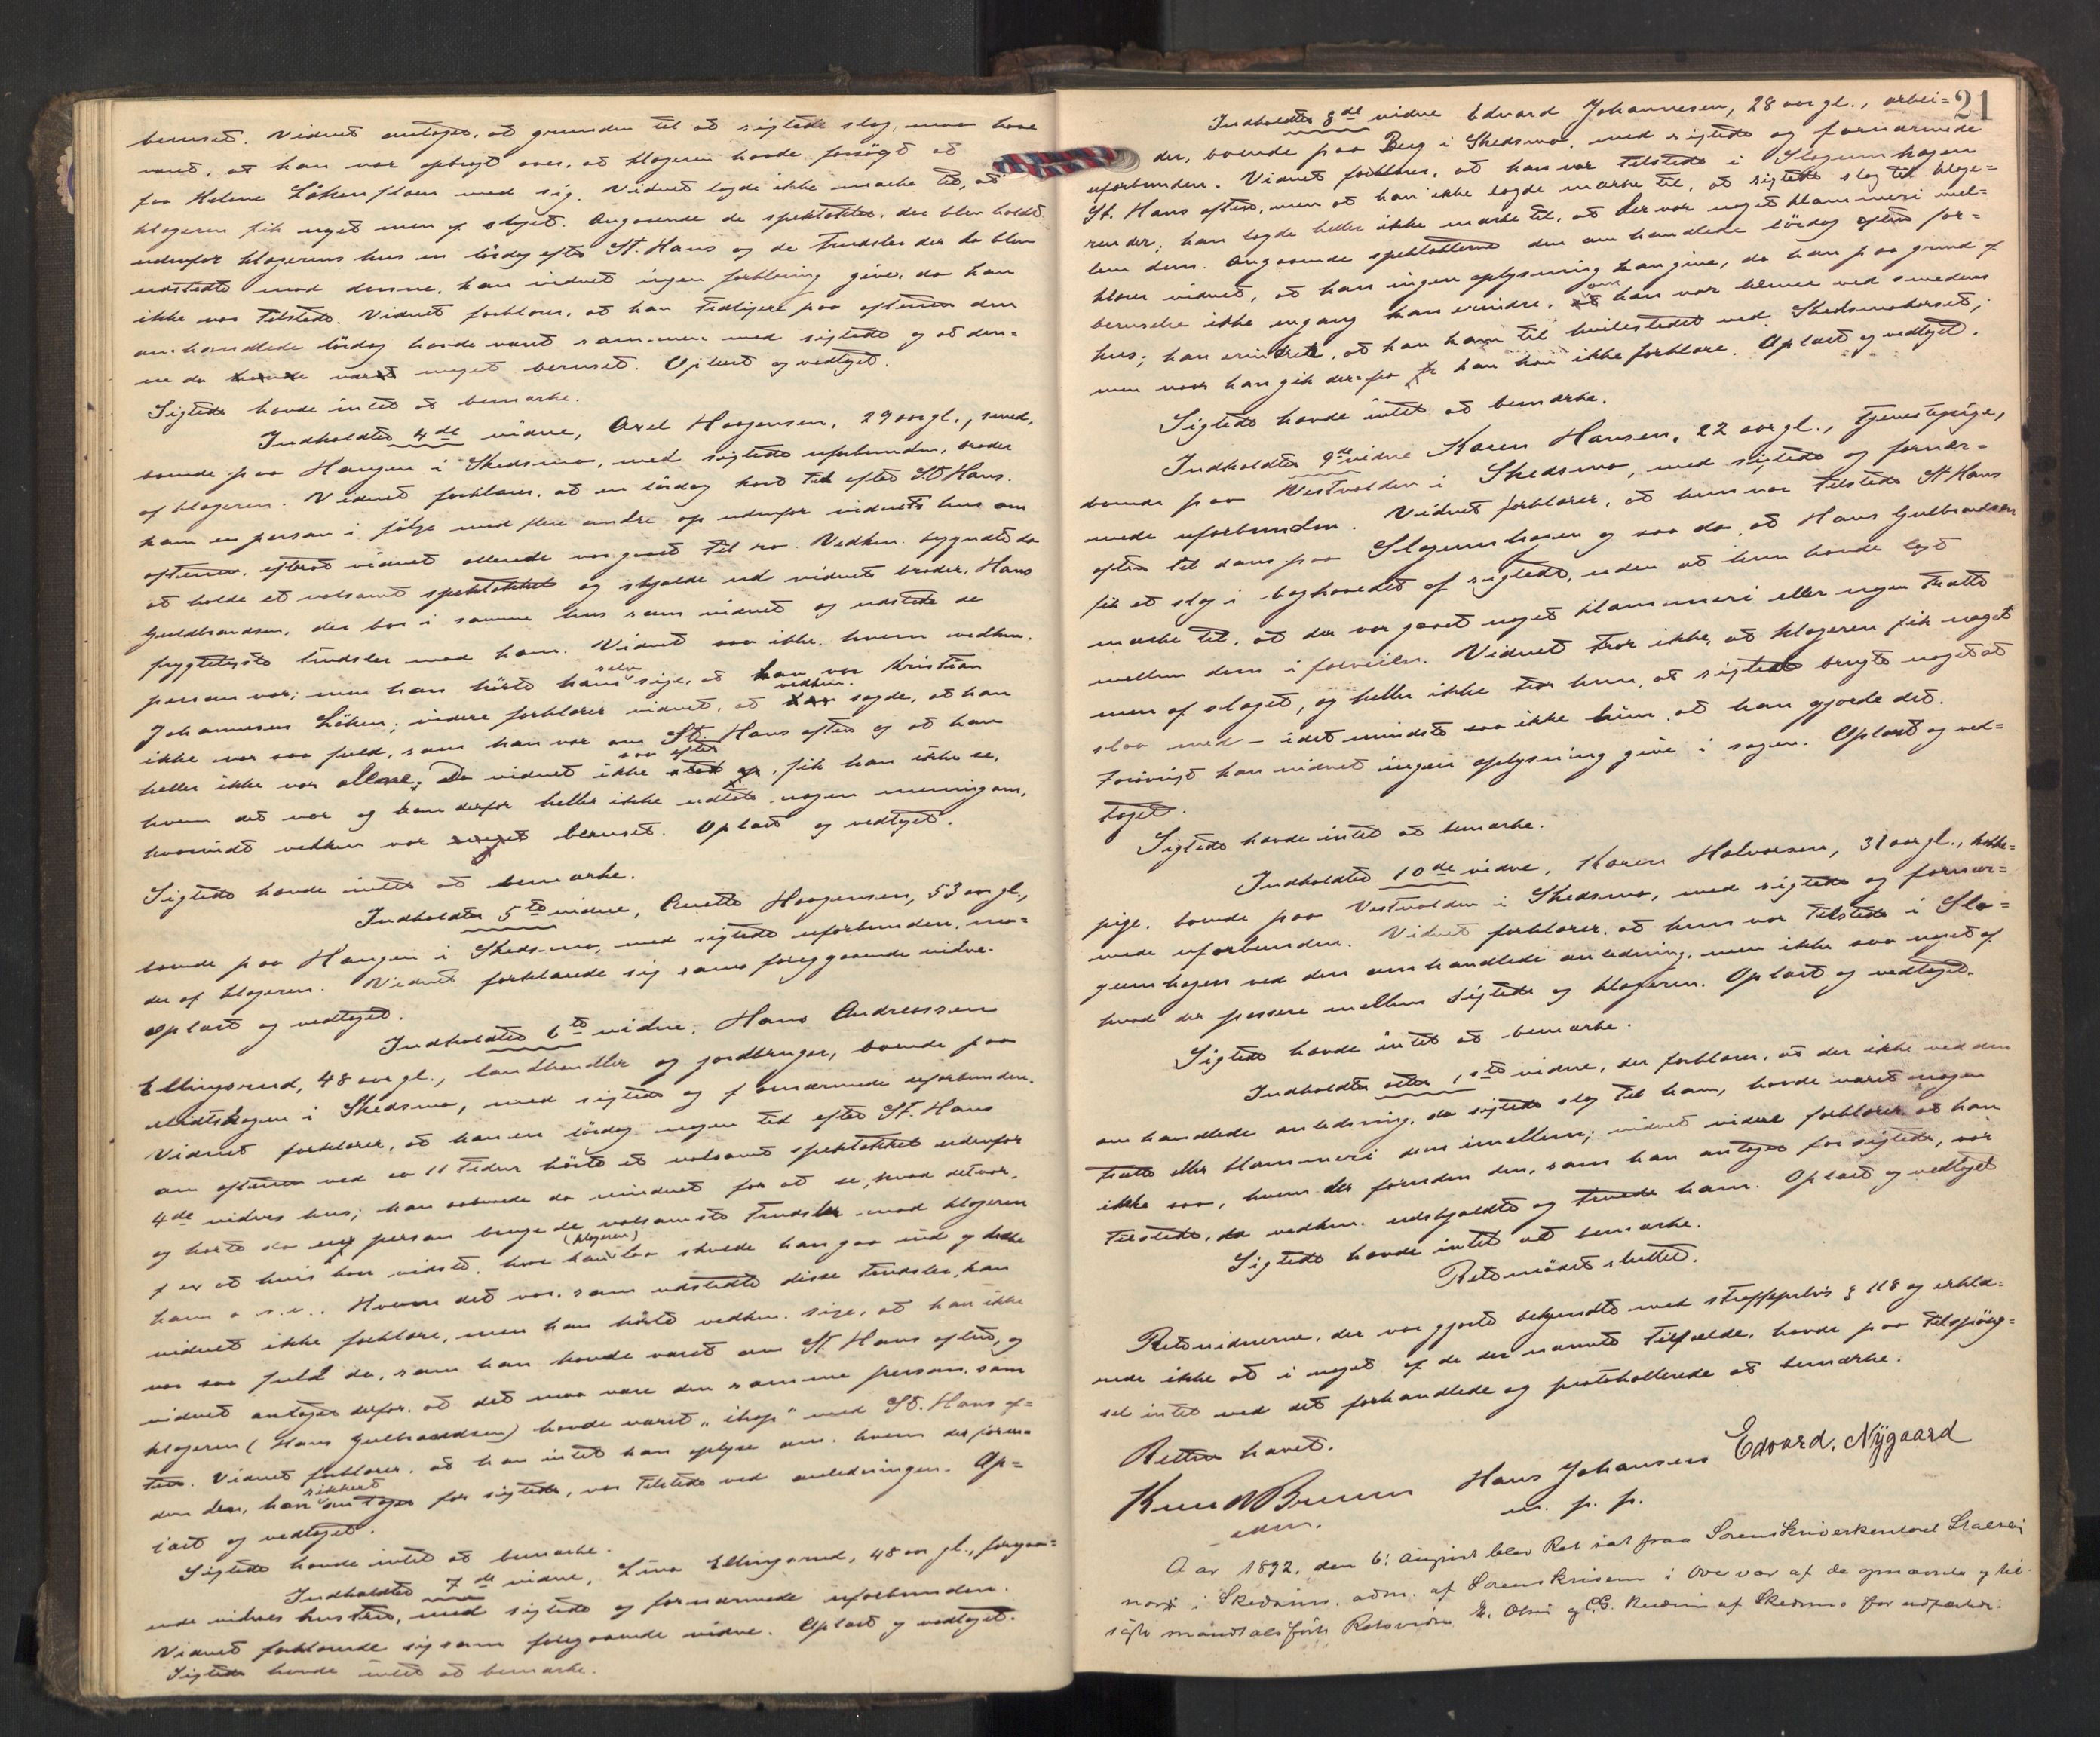 beruset. Vidnet antager, at grunden til at sigtede slog, maa have
været, at han var opbragt over, at klageren havde forsøgt at
faa Helene Løkensfloen med sig. Vidnet lagde ikke mærke til, at
klageren fik noget men af slaget. Angaaende de spektakler, der blev holdt
udenfor klagerens hus en lørdag efter St. Hans og de trudsler der da blev
udstedte mod denne, kan vidnet ingen forklaring give, da han
ikke var tilstede. Vidnet forklarer, at han tidligere paa aftenen den
omhandlede lørdag havde været sammen med sigtede og at den-
ne da havde været meget beruset. Oplæst og vedtaget.
Sigtede havde intet at bemærke.
Indkaldtes 4de vidne, Axel Haagensen, 29 aar gl., smed,
boende paa Haugen i Skedsmo, med sigtede uforbunden, broder
af klageren. Vidnet forklarer, at en lørdag kort tid efter St Hans.
kom en person i følge med flere andre op udenfor vidnets hus om
aftenen, efterat vidnet allerede var gaaet til ro. Vedkm. begyndte da
at holde et voldsomt spektakkel og skjælde ud vidnets broder, Hans
Guldbrandsen, der bor i samme hus som vidnet og udstede de
frygteligste trudsler mod ham. Vidnet saa ikke, hvem vedkm.
person var; men han hørte ham selv sige, at han var Kristian
Johannesen Løken; videre forklarer vidnet, at han vedkm. sagde, at han
ikke var saa fuld, som han var om St. Hans aften og at han
heller ikke var allene; Da vidnet ikke stod op saa efter, fik han ikke se,
hvem det var og kan derfor heller ikke udtale nogen mening om,
hvorvidt vedkm var meget beruset. Oplæst og vedtaget.
Sigtede havde intet at bemærke.
Indkaldtes 5te vidne, Anette Haagensen, 53 aar gl.,
boende paa Haugen i Skedsmo, med sigtede uforbunden, mo-
der af klageren. Vidnet forklarede sig som foregaaende vidne.
Oplæst og vedtaget.
Indkaldtes 6te vidne, Hans Andreassen
Ellingsrud, 48 aar gl., landhandler og jordbruger, boende paa
Midtskogen i Skedsmo, med sigtede og fornærmede uforbunden.
Vidnet forklarer, at han en lørdag nogen tid efter St. Hans
om aftenen ved ca 11 tiden hørte et voldsomt spektakkel udenfor
4de vidnes hus; han aabnede da vinduet for at se, hvad det var,
og hørte da en person bruge de voldsomste trudsler mod klageren
f ex at hvis han vidste, hvor han (klageren) laa skulde han gaa ind og trække
ham o. s. v.. Hvem det var, som udstedte disse trudsler, kan
vidnet ikke forklare, men han hørte vedkm. sige, at han ikke
var saa fuld da, som han havde været om St. Hans aften, og
vidnet antager derfor, at det maa være den samme person, som
klageren (Hans Gulbrandsen) havde været "ihop" med St. Hans af-
ten. Vidnet forklarer, at han intet kan oplyse om, hvem der foru-
den den, han sikkert antager for sigtede, var tilstede ved anledningen. Op-
læst og vedtaget.
Sigtede havde intet at bemærke.
Indkaldtes 7de vidne, Lina Ellingsrud, 48 aar gl., foregaa-
ende vidnes hustru, med sigtede og fornærmede uforbunden.
Vidnet forklarede sig som foregaaende vidne. Oplæst og vedtaget.
Sigtede havde intet at bemærke.
21
Indkaldtes 8de vidne Edvard Johannesen, 28 aar gl., arbei-
der, boende paa Berg i Skedsmo, med sigtede og fornærmede
uforbunden. Vidnet forklarer, at han var tilstede i Slogumhagen
St. Hans aften, men at han ikke lagde mærke til, at sigtede slog til klage-
ren der; han lagde heller ikke mærke til, at der var noget klammeri mel-
lem dem. Angaaende spektaklerne den omhandlede lørdag aften for-
klarer vidnet, at han ingen oplysning kan give, da han paa grund af
beruselse ikke engang kan erindre, at om han var henne ved smedens
hus; han erindrer, at han kom til hvilestedet ved Skedsmokorset;
men naar han gik derfra kan han ikke forklare. Oplæst og vedtaget.
Sigtede havde intet at bemærke.
Indkaldtes 9de vidne Karen Hansen, 22 aar gl., tjenestepige,
boende paa Vestvolden i Skedsmo, med sigtede og fornær-
mede uforbunden. Vidnet forklarer, at hun var tilstede St Hans
aften til dans paa Slogumhagen og saa da, at Hans Gulbrandsen
fik et slag i baghovedet af sigtede, uden at hun havde lagt
mærke til, at der var gaaet noget klammeri eller nogen trætte
mellem dem i forveien. Vidnet tror ikke, at klageren fik noget
men af slaget, og heller ikke tror hun, at sigtede brugte noget at
slaa med – idetmindste saa ikke hun, at han gjorde det.
Forøvrigt kan vidnet ingen oplysning give i sagen. Oplæst og ved-
taget.
Sigtede havde intet at bemærke.
Indkaldtes 10de vidne, Karen Halvorsen, 31 aar gl., kokke-
pige, boende paa Vestvolden i Skedsmo, med sigtede og fornær-
mede uforbunden. Vidnet forklarer, at hun var tilstede i Slo-
gumhagen ved den omhandlede anledning, men ikke saa noget af
hvad der passere mellem sigtede og klageren. Oplæst og vedtaget.
Sigtede havde intet at bemærke.
Indkaldtes atter 1ste vidne, der forklarer, at der ikke ved den
omhandlede anledning, da sigtede slog til ham, havde været nogen
trætte eller klammeri dem imellem; vidnet videre forklarer at han
ikke saa, hvem der foruden den, som han antager for sigtede, var
tilstede, da vedkm. udskjældte og truede ham. Oplæst og vedtaget
Sigtede havde intet at bemærke.
Retsmødet sluttet.
Retsvidnerne, der var gjort bekjendte med straffeprlvs § 118 og erklæ-
rede ikke at i noget af de der nævnte tilfælde, havde paa tilspørg-
sel intet ved det forhandlede og protokollerede at bemærke.
Retten hævet.
Knud Bruun Hans Johansen Edvard. Nÿgaard
edm. m. p. p.
Aar 1892, den 6. August blev Ret sat paa Sorenskriverkontoret
i Skedsmo, adm. af Sorenskriveren i Overvær af de opnævnte og til-
Retsvidner E. Olsen og af Skedsmo for